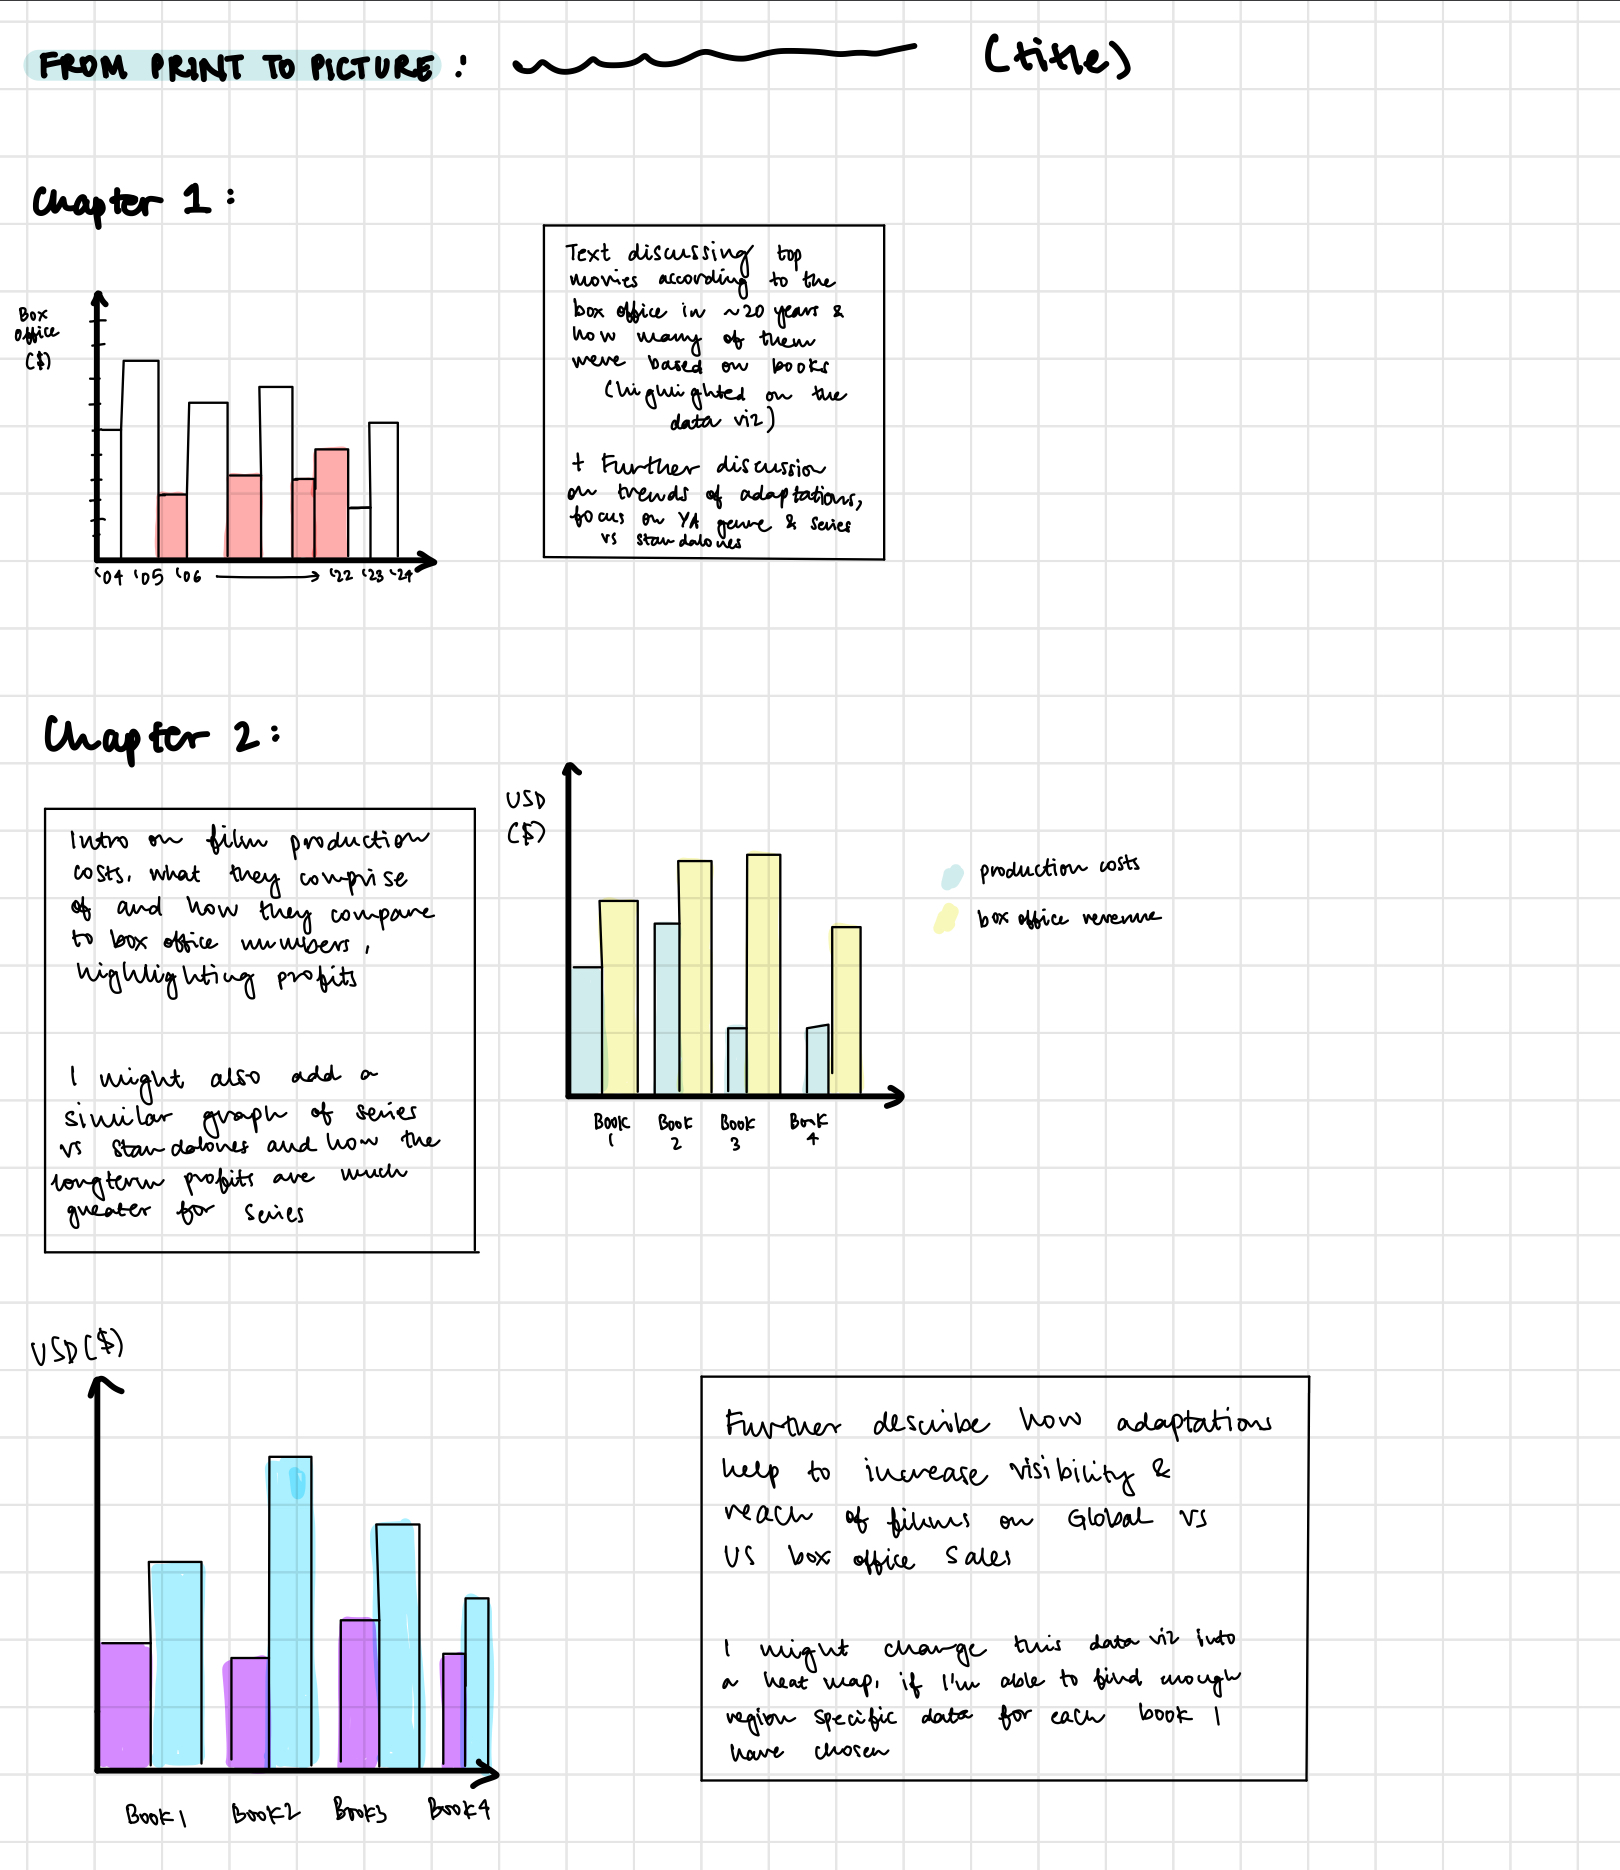 FROM PRINT TO PICTURE : (title)
Chapter 1 :
Box
office
($)
'04 '05 '06 '22 '23 '24
Text discussing top
movies according to the
box office in ~20 years &
how many of them
were based on books
(highlighted on the
data viz)
+ Further discussion
on trends of adaptations,
focus on YA genre & series
vs standalones
Chapter 2 :
Intro on film production
costs, what they comprise
of and how they compare
to box office numbers,
highlighting profits
I might also add a
similar graph of series
vs standalones and how the
longterm profits are much
greater for series
USD
($)
Book
1
Book
2
Book
3
Book
4
production costs
box office revenue
USD ($)
Book 1 Book 2 Book 3 Book 4
Further describe how adaptations
help to increase visibility &
reach of films on Global vs
US box office sales
I might change this data viz into
a heat map, if I'm able to find enough
region specific data for each book I
have chosen